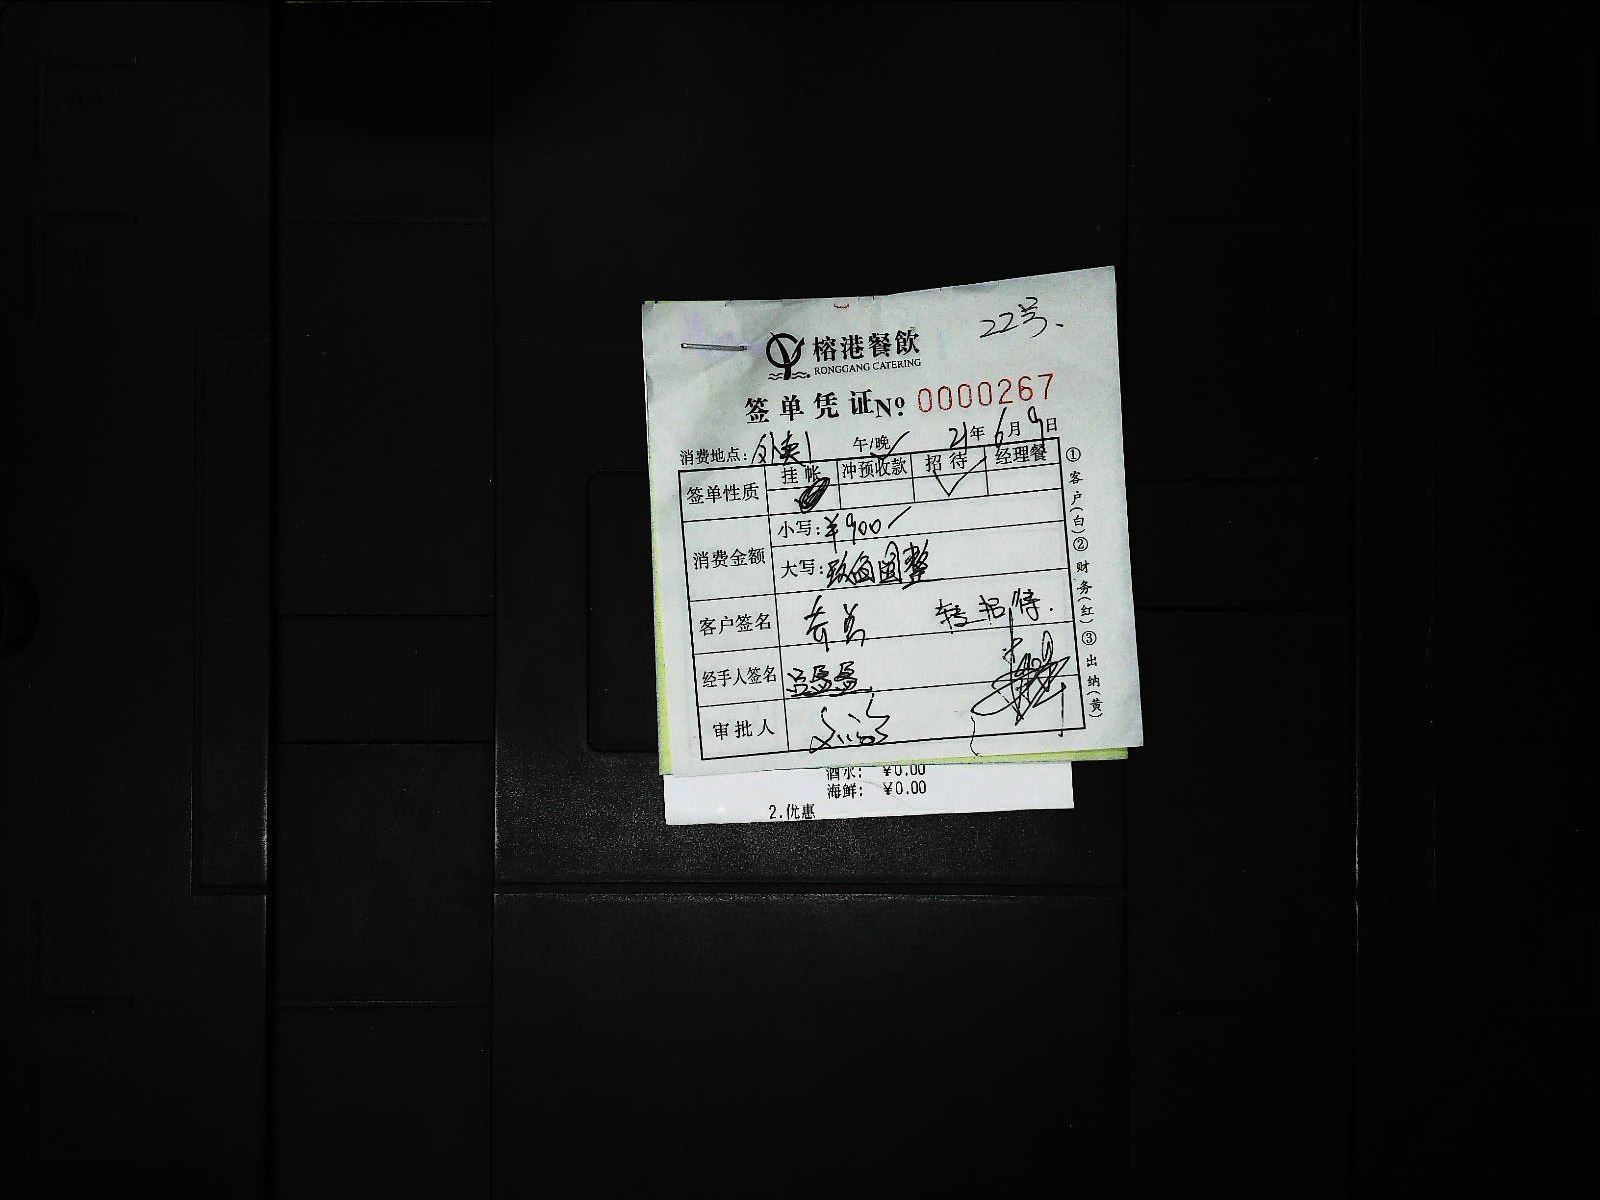 22号、
榕港餐飲
RONGGANG CATERING
签单凭证 Nº 0000267
消费地点：外卖 午/晚 21年6月9日
签单性质 挂帐 冲预收款 招待 经理餐
消费金额 小写：¥900
大写：玖佰圆整
客户签名 转招待.
经手人签名
审批人
①客户（白）②财务（红）③出纳（黄）
酒水： ¥0.00
海鲜： ¥0.00
2.优惠